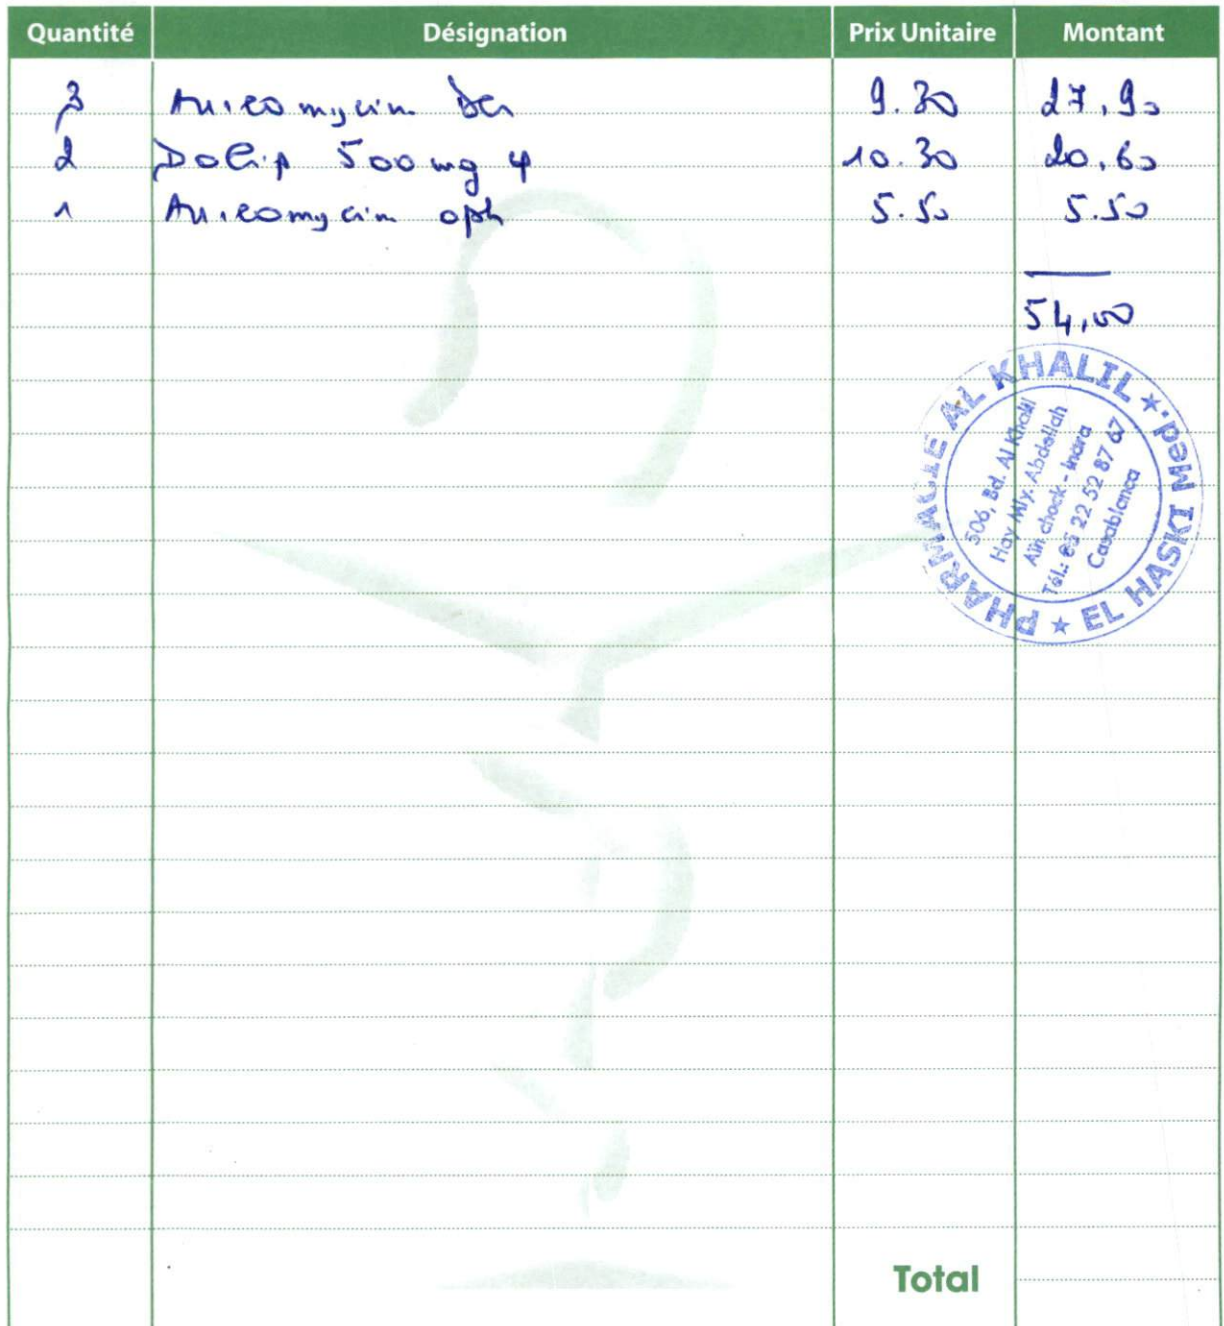 Quantité Désignation Prix Unitaire Montant
3 Aureomycin Der 9.30 27,90
2 Dolip 500 mg 10.30 20,60
1 Aureomycin oph 5.50 5.50
54,00
PHARMACIE AL KHALIL ★ EL HASKI Med. ★
506, Bd. Al Khalil
Hay Mly. Abdellah
Aïn chock - Inara
Tél.: 05 22 52 87 67
Casablanca
Total